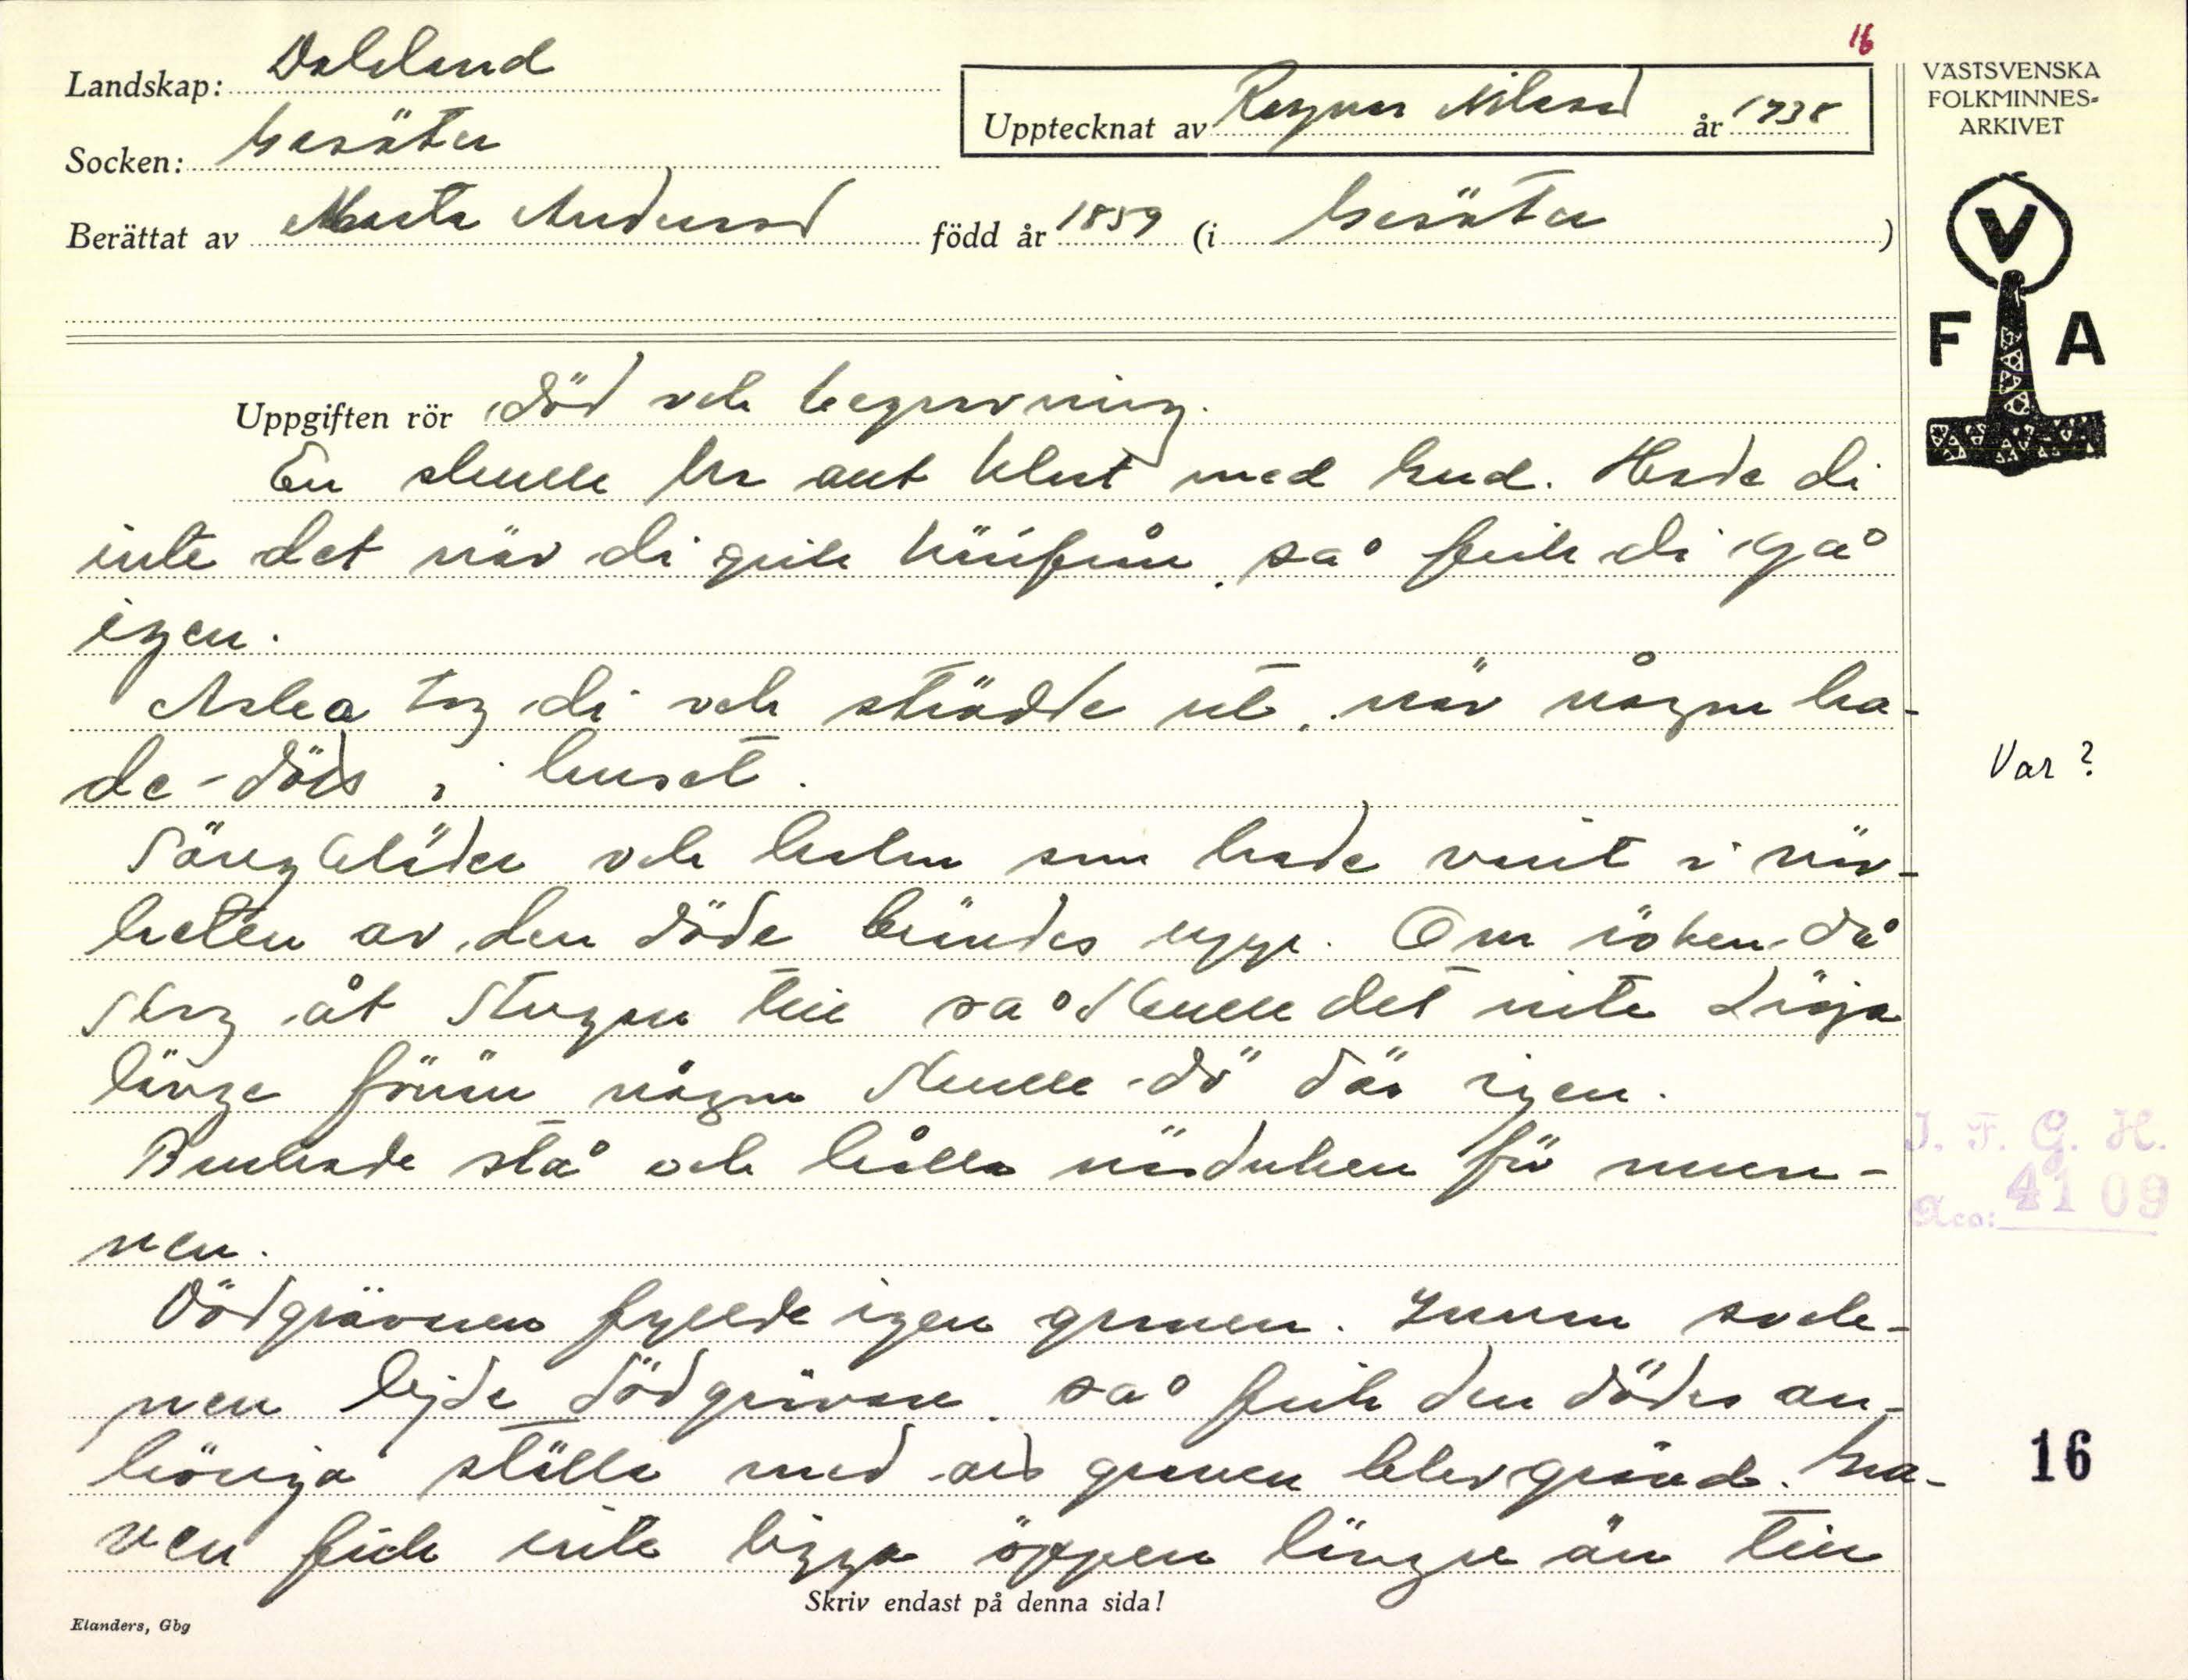 16
Landskap: Dalsland
Upptecknat av Ragnar Nilsson år 1938
VÄSTSVENSKA
FOLKMINNES-
ARKIVET
Socken: Gesäter
Berättat av Marta Andersson född år 1859 (i Gesäter)
V
F A
Uppgiften rör Död och begravning.
En skulle ha allt klart med Gud. Hade di
inte det när di gick härifrån, så fick di gå
igen.
Aska tog di och strödde ut, när någon ha-
de dött i huset.
Var?
Sängkläder och halm som hade varit i när-
heten av den döde brändes upp. Om röken då
slog åt stugan till så skulle det inte dröja
länge förrän någon skulle dö där igen.
Brukade stå och hålla näsduken för mun-
nen.
J. F. G. H.
Acc: 4109
Dödgrävaren fyllde igen graven. Innan sock-
nen lejde dödgrävare, så fick den dödes an-
höriga ställa med att graven blev grävd. Gra-
ven fick inte ligga öppen längre än till
16
Skriv endast på denna sida!
Elanders, Gbg